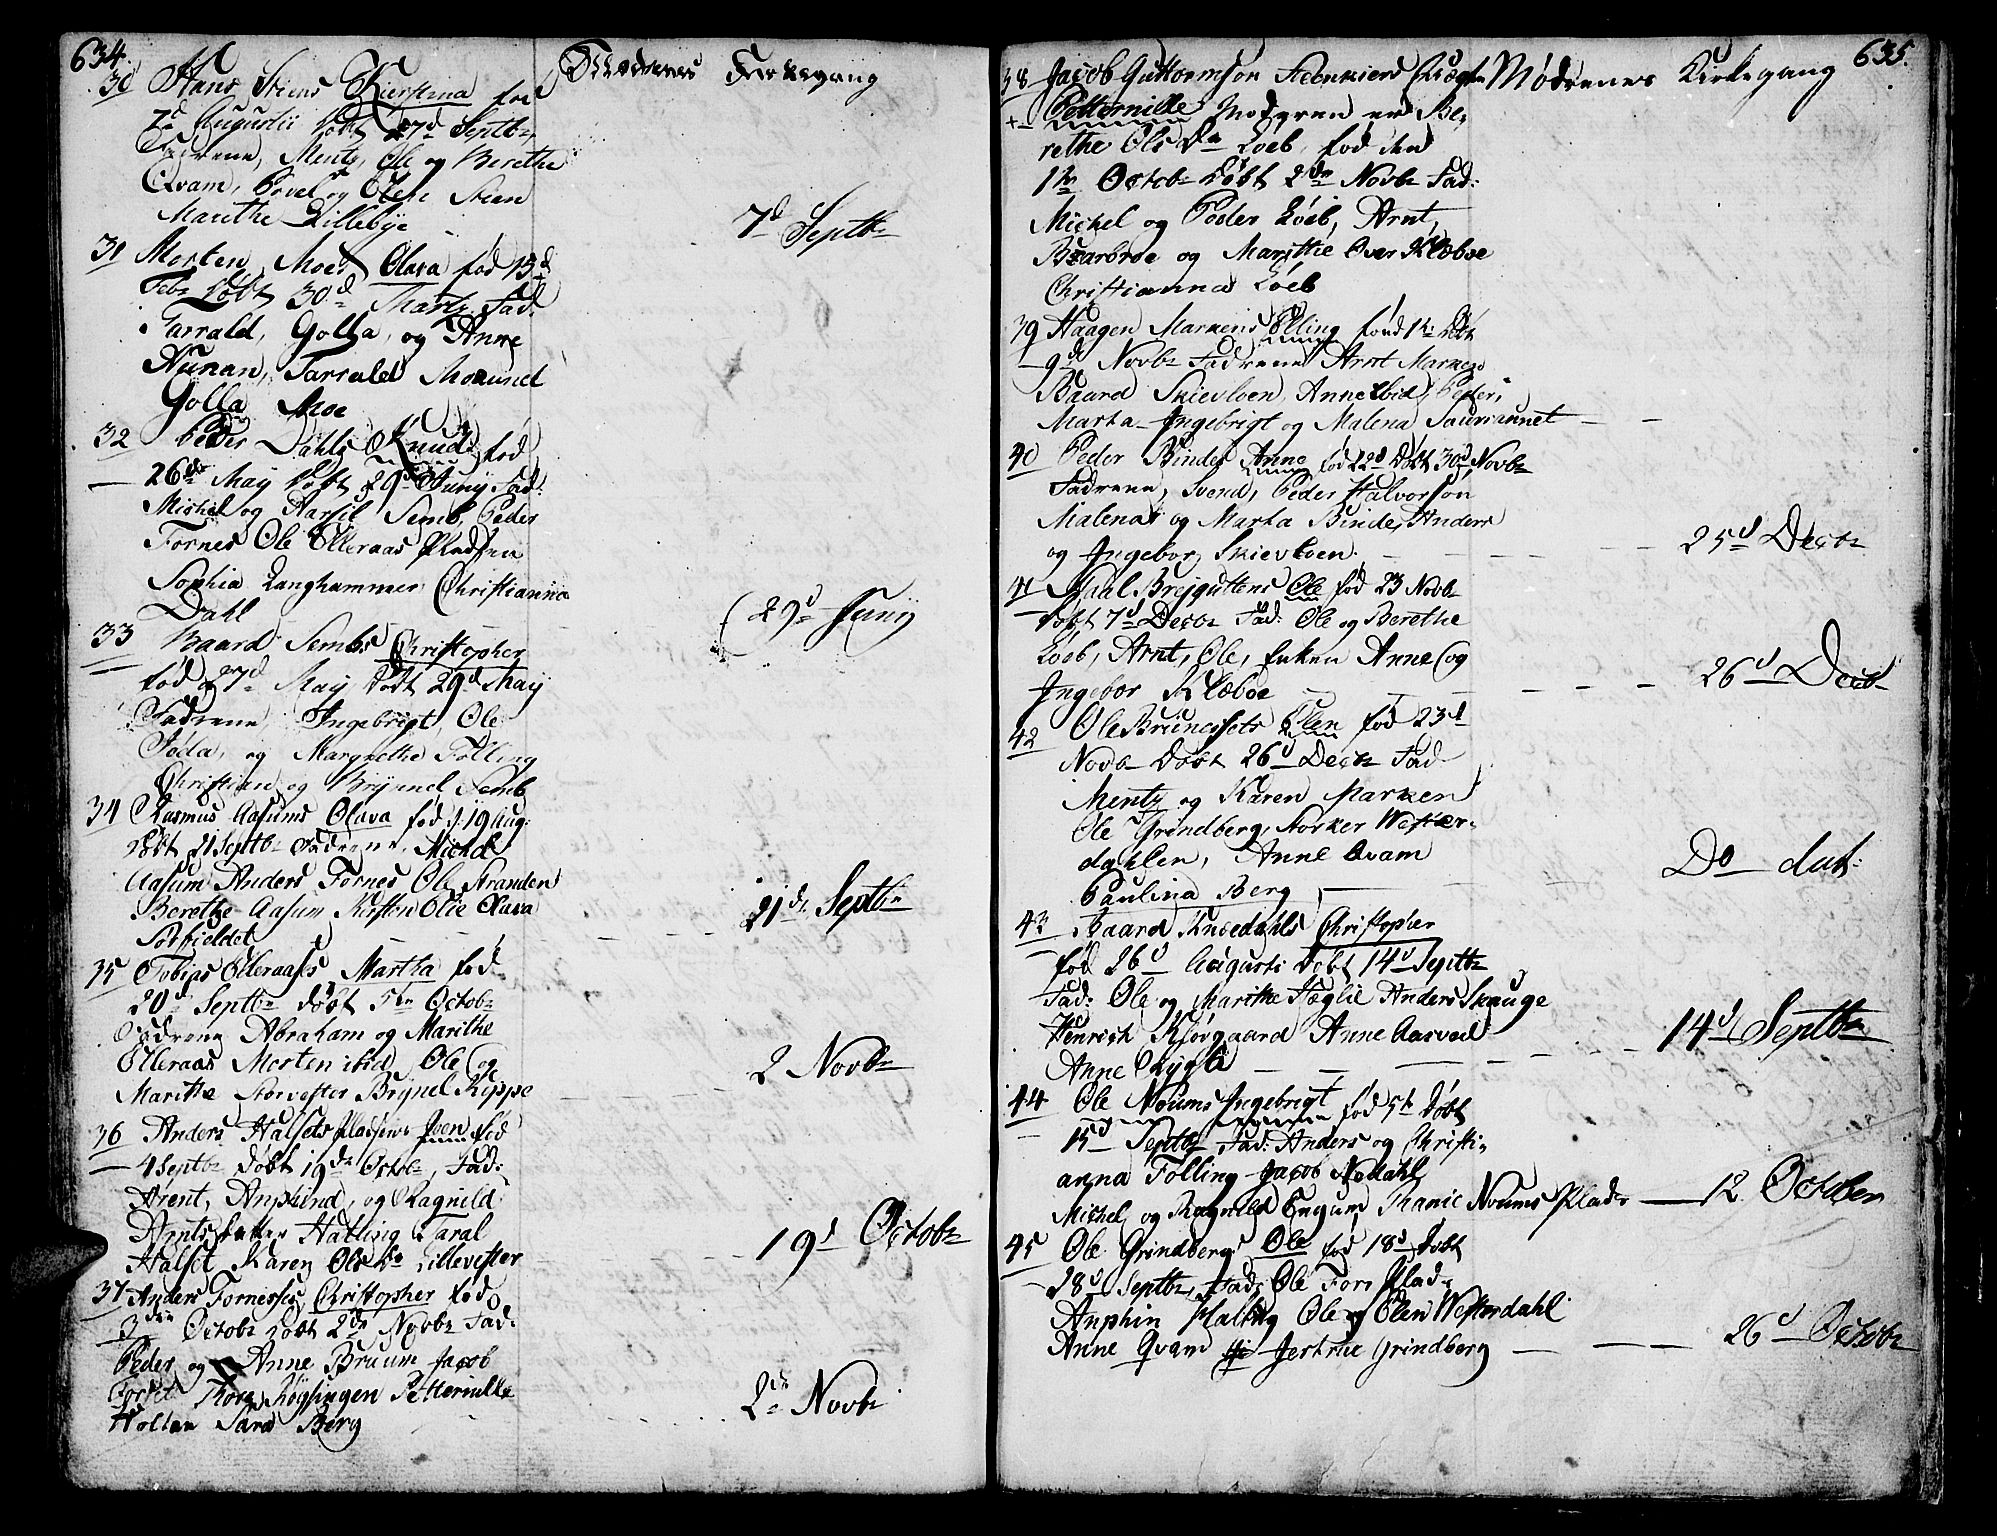 634.
Mødrenes Kirkegang
30 Hans Stens Kierstena fød
7d Augustii Døbt 7d Septbr
Fadrene, Mentz, Ole og Berethe
Qvam, Povel og Olen Steen
Marithe Lillebye
7d Septbr
31 Morten Moes Olava fød 15d
Febr Døbt 30d Martz Fad:
Tarrald, Golla, og Anne
Hunan, Tarrald
Golla Moe
32 Peder Dahls Knud fød
26de May Døbt 29d Juny Fad:
Michel og Marsil Semb, Peder
Fornes Ole Elleraas Pladsen
Sophia Langhammer Christianna
Dahl
29d Junij
33 Baard Sembs Christopher
fød 7d May Døbt 29d May
Fadrene, Ingebrigt, Ole
Føda, og Margrethe Følling
Christian og Brynnel Semb
34 Rasmus Aasums Olava fød d: 19 Aug:
Døbt 21 Septbr Fadrene Michel
Aasum Anders Fornes, Ole Stranden
Berethe Aasum Kirsten Olie Olava
Sorfieldet
21de Septbr
35 Tobias Elleraases Martha fød
20d Septbr døbt 5te Octobr
Fadrene Abraham og Marithe
Elleraas Morten ibid, Ole og
Marithe Storvester Brynel Kippe
2 Novbr
36 Anders Halsets Pladsens Joen fød
4 Septbr Døbt 19de Octobr, Fad:
Arent, Anphind, og Ragnild
Hatling Taral
Halset Karen Ols Dr Lillevester
19d Octobr
37 Anders Fornesses Christopher fød
3die Octobr Døbt 2de Novbr Fad:
Peder og Anne Bruum Jacob
Thore Røysingen Petternille
Holten Sara Berg
2de Novbr
635.
Mødrenes Kirkegang
38 Jacob Guttormsøn Steenkiers
Petternille Moderen er Be-
rethe Ols Dr Løeb, fød den
1te Octobr Døbt 2de Novbr Fad:
Michel og Peder Løeb, Arnt,
Baarbroe og Marithe Over Klæboe
Christianna Løeb
39 Haagen Markens Elling fød 1te Døbt
9d Novbr Fadrene Arnt Marken
Baard Skievloen Anne ibid, Peder,
Marta Ingebrigt og Malena Saurannet
40 Peder Bindes Anne fød 22d Døbt 30d Novbr
Fadrene, Svend, Peder Halvorson
Malena og Marta Binde, Anders
og Ingebor Skievloen
25d Decbr
41 Paal Brejguttens Ole fød 23 Novbr
Døbt 7d Decbr Fad: Ole og Berethe
Løeb, Arnt, Ole, Enken Anne og
Ingebor Klæboe
26d Decbr
42 Ole Brunessets Elen fød 23d
Novbr Døbt 26d Decbr Fad
Mentz og Karen Marken
Ole Grindberg, Storker Wester-
dahlen, Anne Qvam
Paulina Berg
Do dat:
43 Baard Knoedahls Christopher
fød 26d Augusti Døbt 14d Septbr
Fad: Ole og Marithe Hæglie Anders Skauge
Henrich Kjørgaard Anne Aasved
Anne Rygh
14d Septbr
44 Ole Noums Ingebrigt fød 5te Døbt
15d Septbr Fad: Anders og Christi-
anna Følling Jacob Nøedahl
Michel og Ragnild Engum Thanie Noums Plads
12 October
45 Ole Grindbergs Ole fød 18d Døbt
28d Septbr, Fad: Ole Forr Plads
Anphin Halling Ole og Olen Westerdahl
Anne Qvam Jertrue Grindberg
26d Octobr